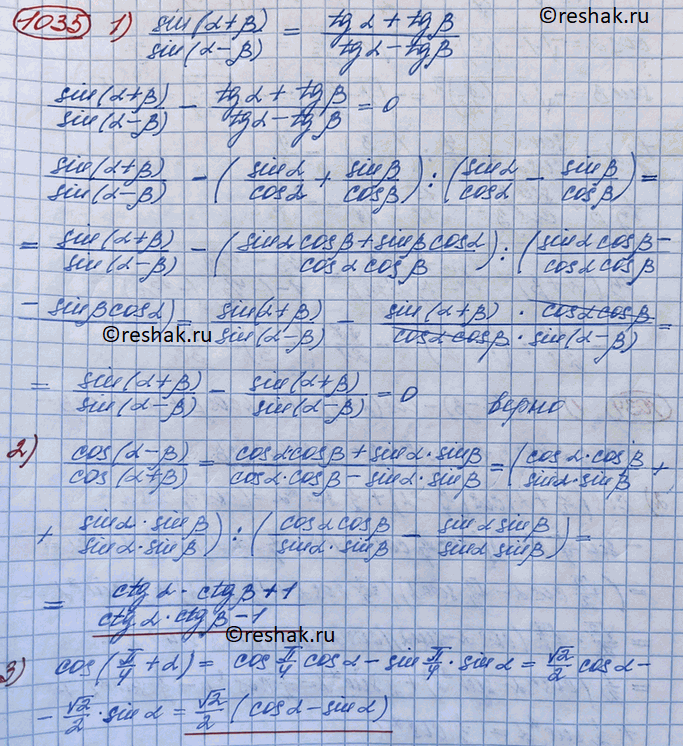 1035 1) sin(α+β)/sin(α−β) = (tgα + tgβ)/(tgα − tgβ)
©reshak.ru
sin(α+β)/sin(α−β) − (tgα + tgβ)/(tgα − tgβ) = 0
sin(α+β)/sin(α−β) − (sinα/cosα + sinβ/cosβ) : (sinα/cosα − sinβ/cosβ) =
= sin(α+β)/sin(α−β) − ((sinα cosβ + sinβ cosα)/(cosα cosβ)) : (sinα cosβ − / cosα cosβ
− sinβ cosα) = sin(α+β)/sin(α−β) − (sin(α+β) · cosα cosβ)/(cosα cosβ · sin(α−β)) =
©reshak.ru
©reshak.ru
= sin(α+β)/sin(α−β) − sin(α+β)/sin(α−β) = 0 верно
2) cos(α−β)/cos(α+β) = (cosα·cosβ + sinα·sinβ)/(cosα·cosβ − sinα·sinβ) = (cosα·cosβ/sinα·sinβ +
+ sinα·sinβ/sinα·sinβ) : (cosα cosβ/sinα·sinβ − sinα sinβ/sinα sinβ) =
= (ctgα · ctgβ + 1)/(ctgα · ctgβ − 1)
©reshak.ru
3) cos(π/4 + α) = cos π/4 cosα − sin π/4 · sinα = √2/2 cosα −
− √2/2 · sinα = √2/2 (cosα − sinα)
©reshak.ru